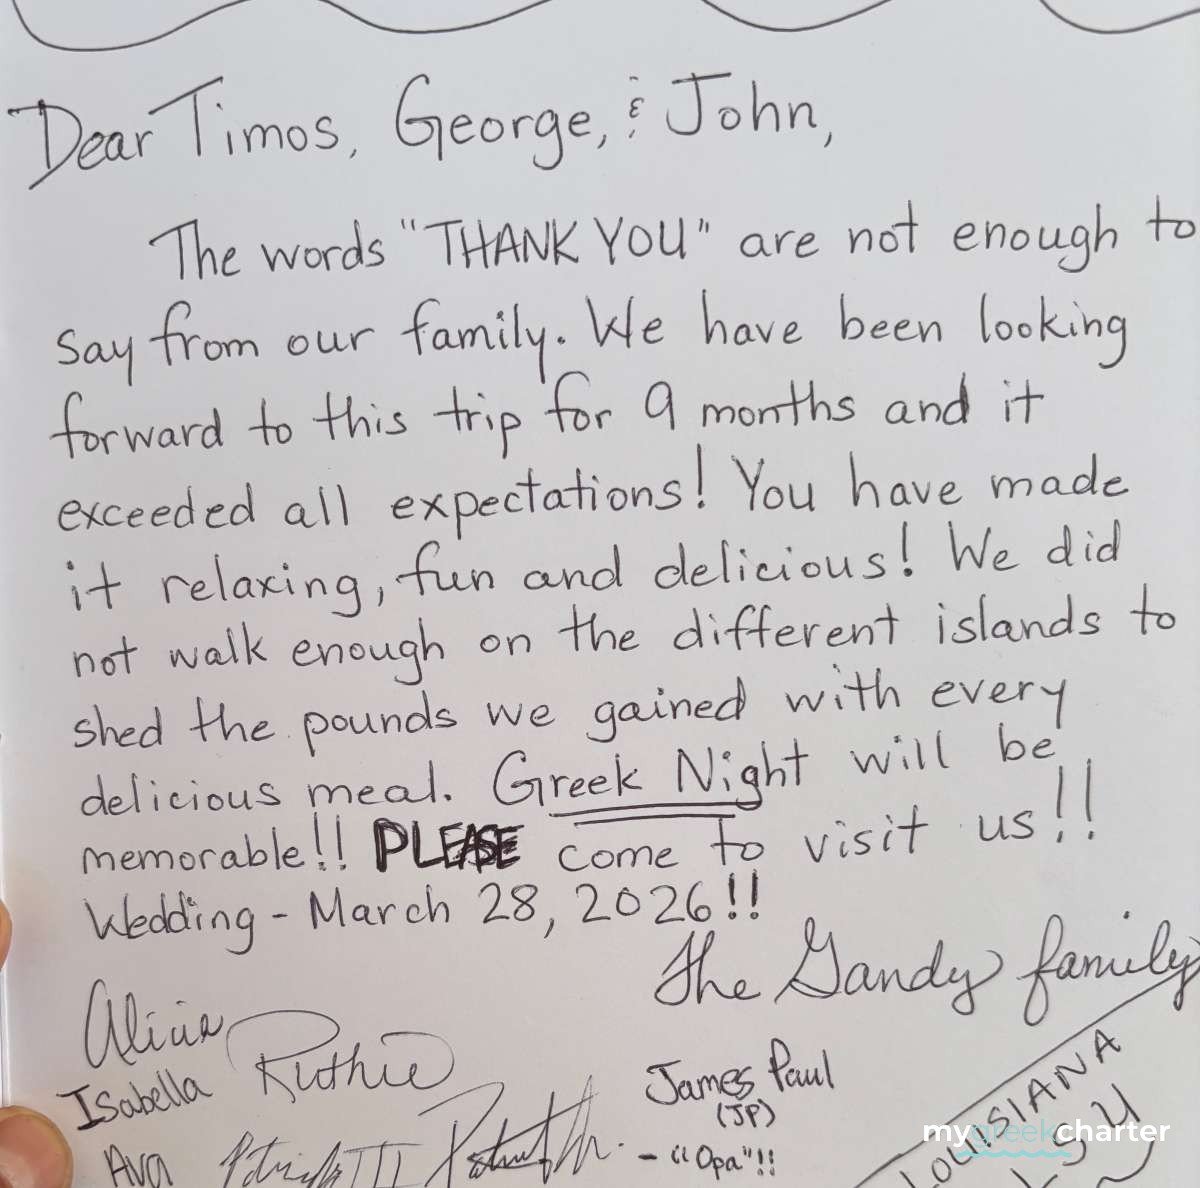 Dear Timos, George, & John,
The words "THANK YOU" are not enough to
say from our family. We have been looking
forward to this trip for 9 months and it
exceeded all expectations! You have made
it relaxing, fun and delicious! We did
not walk enough on the different islands to
shed the pounds we gained with every
delicious meal. Greek Night will be
memorable!! PLEASE come to visit us!!
Wedding - March 28, 2026!!
The Gandy family
Alicia
Ruthie
Isabella
James Paul
(JP)
- "Opa"!!
Ava
Patrick III
LOUISIANA
LSU
mygreekcharter